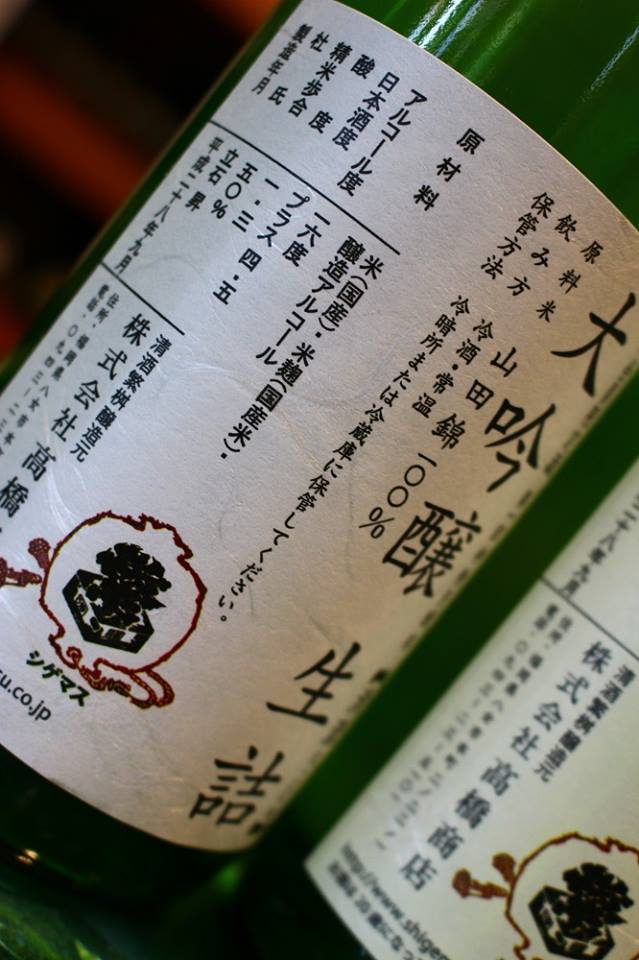 大吟醸 生詰
原料米 山田錦 一〇〇%
飲み方 冷酒・常温
保管方法 冷暗所または冷蔵庫に保管してください。
原材料 米(国産)・米麹(国産米)・
醸造アルコール
アルコール度 一六度
日本酒度 プラス 四・五
酸度 一・三
精米歩合 五〇%
杜氏 立石 昇
製造年月 平成二十八年九月
清酒繁桝醸造元
株式会社 高橋
シゲマス
u.co.jp
二十八年九月
清酒繁桝醸造元
株式会社 高橋商店
http://www.shigem